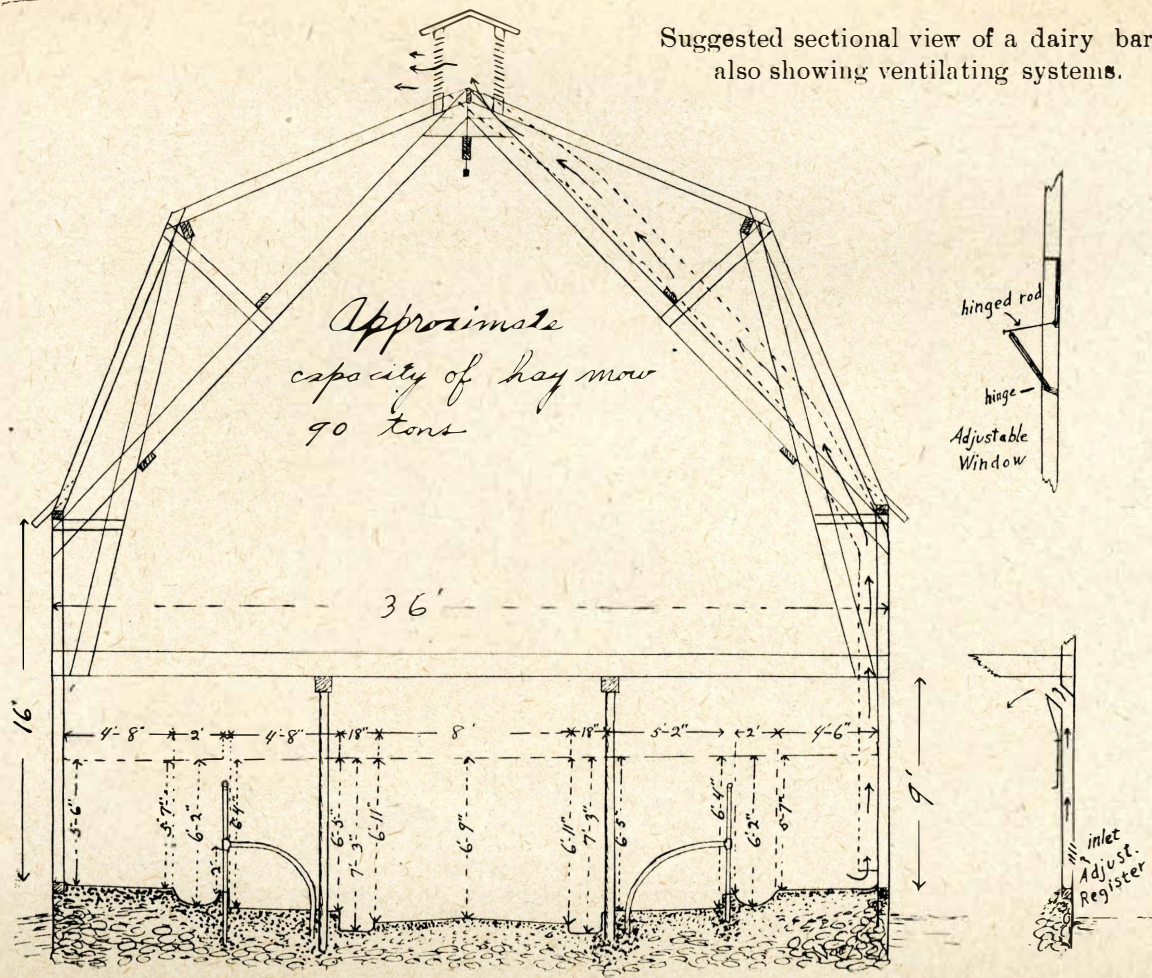 Suggested sectional view of a dairy bar
also showing ventilating systems.
Approximate
capacity of hay mow
90 tons
hinged rod
hinge
Adjustable
Window
36'
16'
4'-8" 2' 4'-8" 18" 8' 18" 5'-2" 2' 4'-6"
5'-6" 5'-7" 6'-2" 6'-4" 6'-5" 7'-3" 6'-11" 6'-9" 6'-11" 7'-3" 6'-5" 6'-4" 6'-2" 5'-7"
9'
inlet
Adjust.
Register